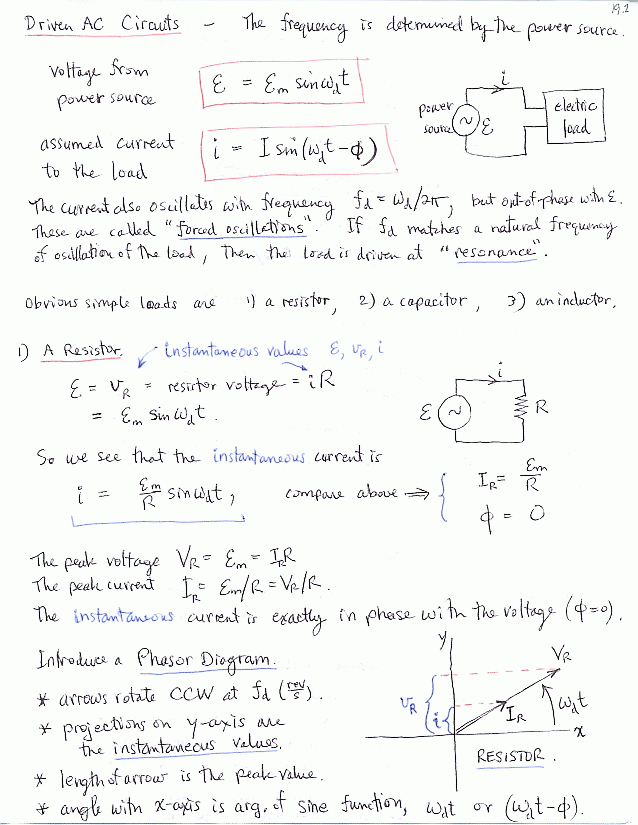 19.1
Driven AC Circuits – The frequency is determined by the power source.
voltage from power source
ℰ = ℰm sin ωdt
assumed current to the load
i = I sin(ωdt – φ)
i
power source
~
ℰ
electric load
The current also oscillates with frequency fd = ωd/2π, but out-of-phase with ℰ.
These are called "forced oscillations". If fd matches a natural frequency
of oscillation of the load, then the load is driven at "resonance".
Obvious simple loads are 1) a resistor, 2) a capacitor, 3) an inductor.
1) A Resistor. instantaneous values ℰ, vR, i
ℰ = vR = resistor voltage = iR
= ℰm sin ωdt.
i
ℰ
~
R
So we see that the instantaneous current is
i = ℰm/R sin ωdt, compare above ⇒ { IR = ℰm/R
φ = 0
The peak voltage VR = ℰm = IRR
The peak current IR = ℰm/R = VR/R.
The instantaneous current is exactly in phase with the voltage (φ=0).
Introduce a Phasor Diagram.
* arrows rotate CCW at fd (rev/s).
* projections on y-axis are
the instantaneous values.
* length of arrow is the peak value.
* angle with x-axis is arg. of sine function, ωdt or (ωdt – φ).
y
VR
vR
i
IR
ωdt
x
RESISTOR.